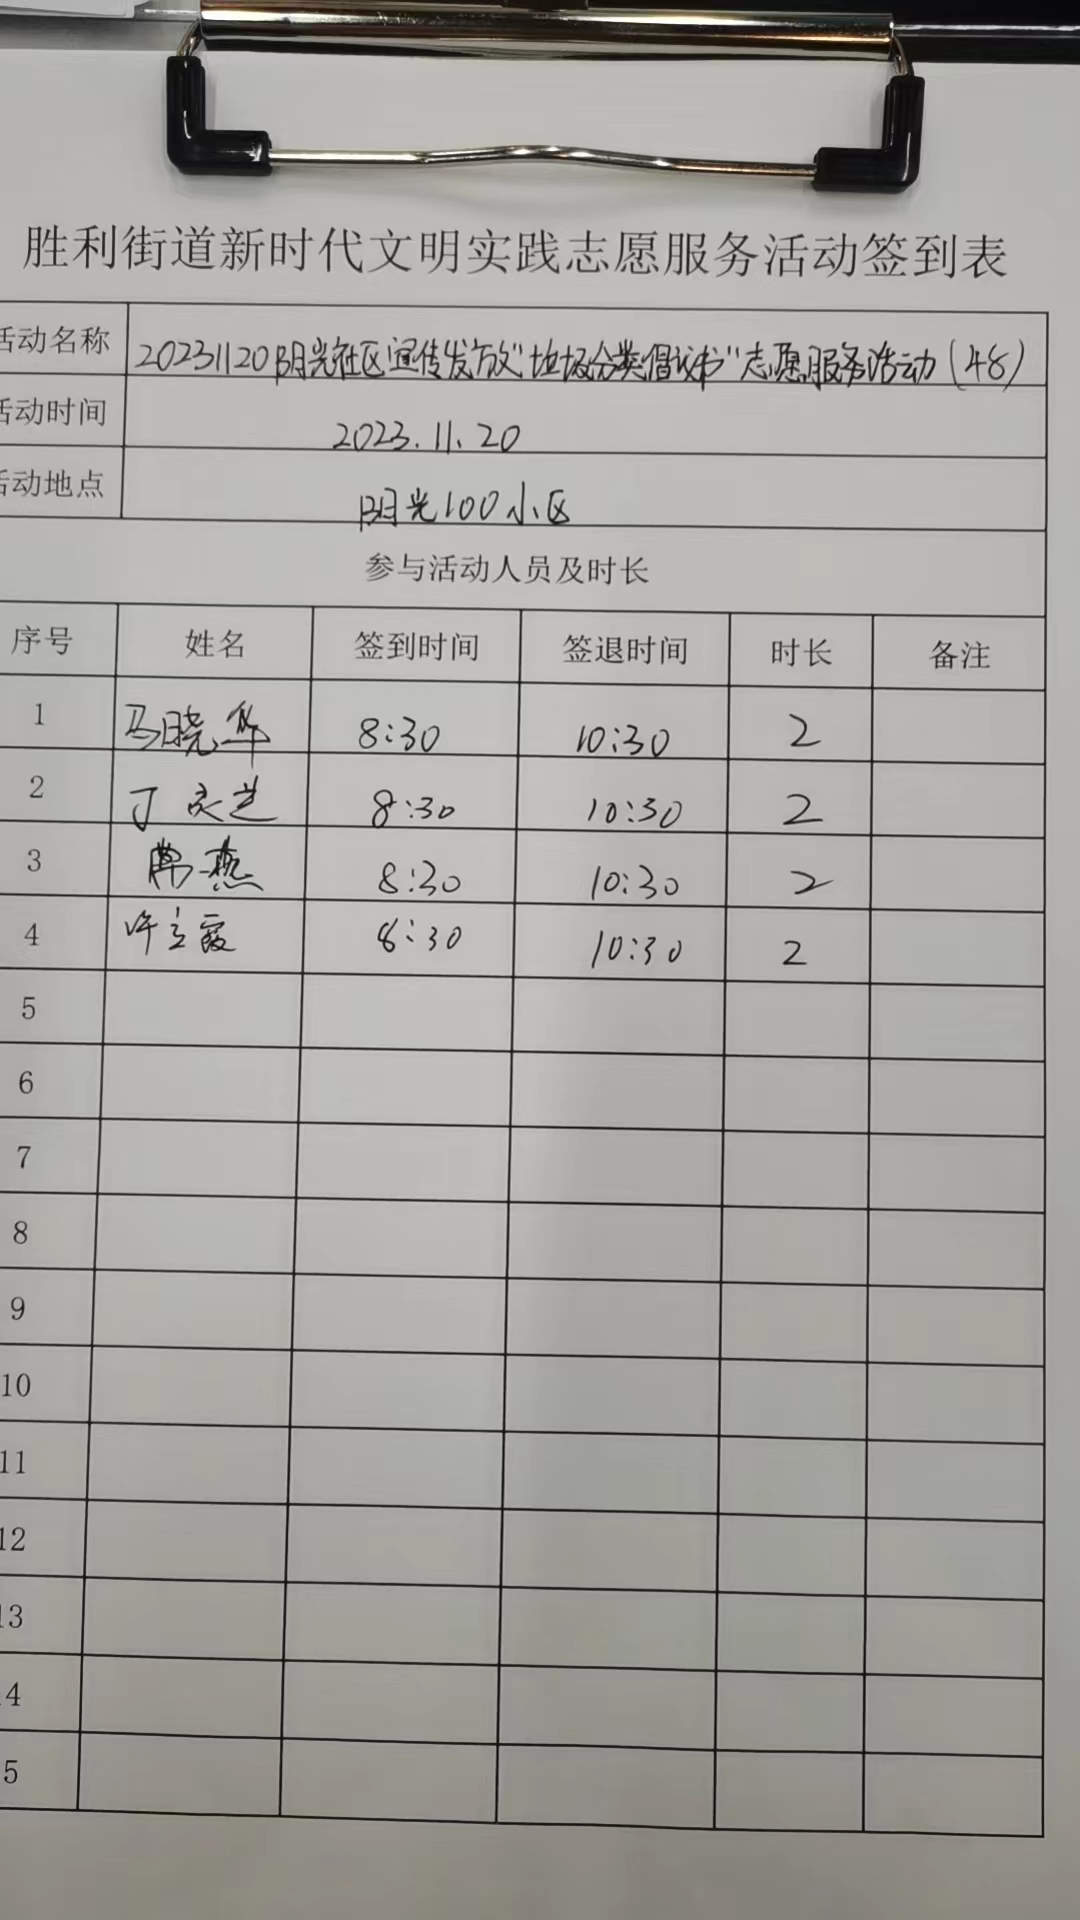 胜利街道新时代文明实践志愿服务活动签到表
活动名称 20231120阳光社区宣传发放"垃圾分类倡议书"志愿服务活动(48)
活动时间 2023.11.20
活动地点 阳光100小区
参与活动人员及时长
序号 姓名 签到时间 签退时间 时长 备注
1 马晓华 8:30 10:30 2
2 丁 8:30 10:30 2
3 常燕 8:30 10:30 2
4 许立霞 8:30 10:30 2
5
6
7
8
9
10
11
12
13
4
5